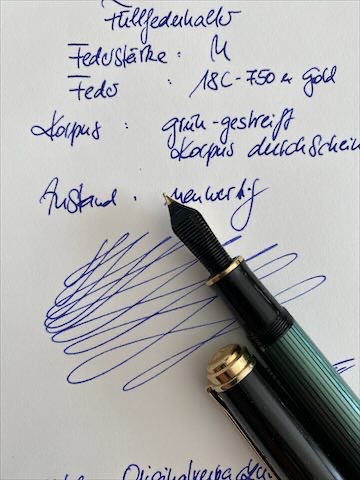 Füllfederhalter
Federstärke : M
Feder : 18C-750er Gold
Korpus : grün-gestreift
Korpus durchschein
Zustand : neuwertig
Originalverpa